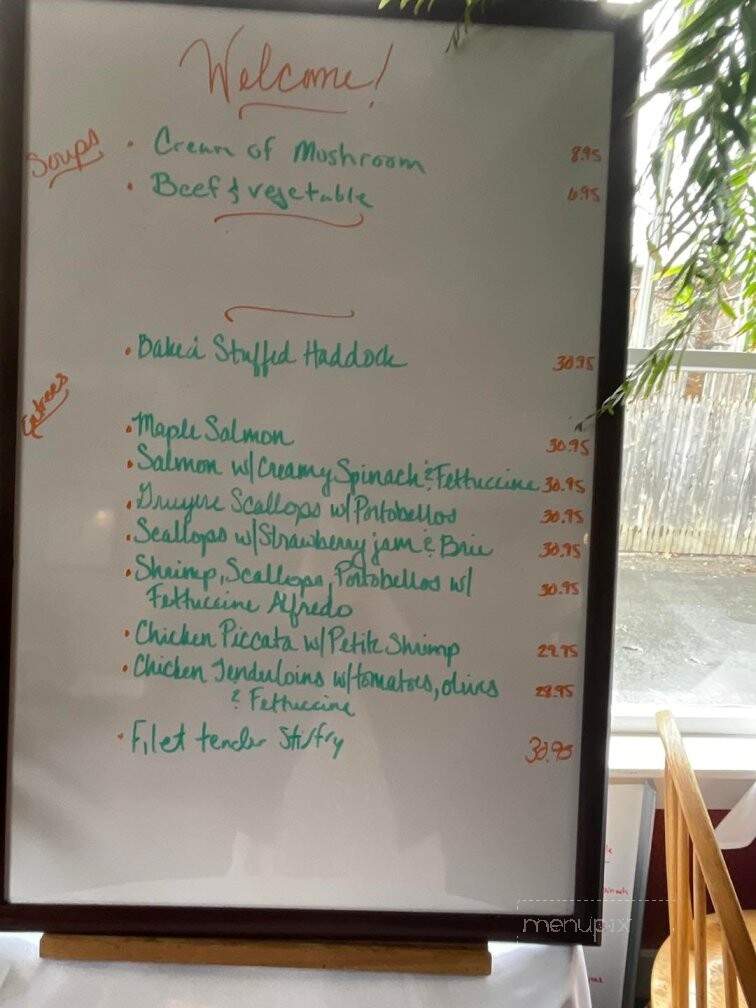 Welcome!
Soups
• Cream of Mushroom 8.95
• Beef & vegetable 6.95
• Baked Stuffed Haddock 30.95
Entrees
• Maple Salmon 30.95
• Salmon w/Creamy Spinach & Fettuccine 30.95
• Gruyere Scallops w/Portobellos 30.95
• Scallops w/Strawberry jam & Brie 30.95
• Shrimp, Scallops, Portobellos w/ 30.95
Fettuccine Alfredo
• Chicken Piccata w/Petite Shrimp 29.95
• Chicken Tenderloins w/tomatoes, olives 28.95
& Fettuccine
• Filet tender Stirfry 30.95
menupix